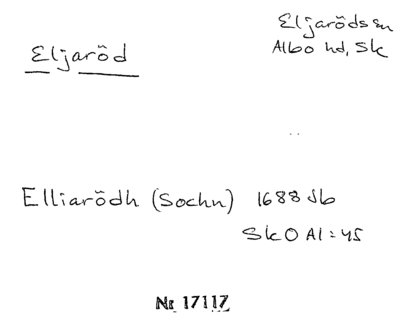 Eljaröd
Eljaröds sn
Albo hd, Sk
Elliarödh (Sochn) 1688 Jb
Sk O Al:45
Nr 17117